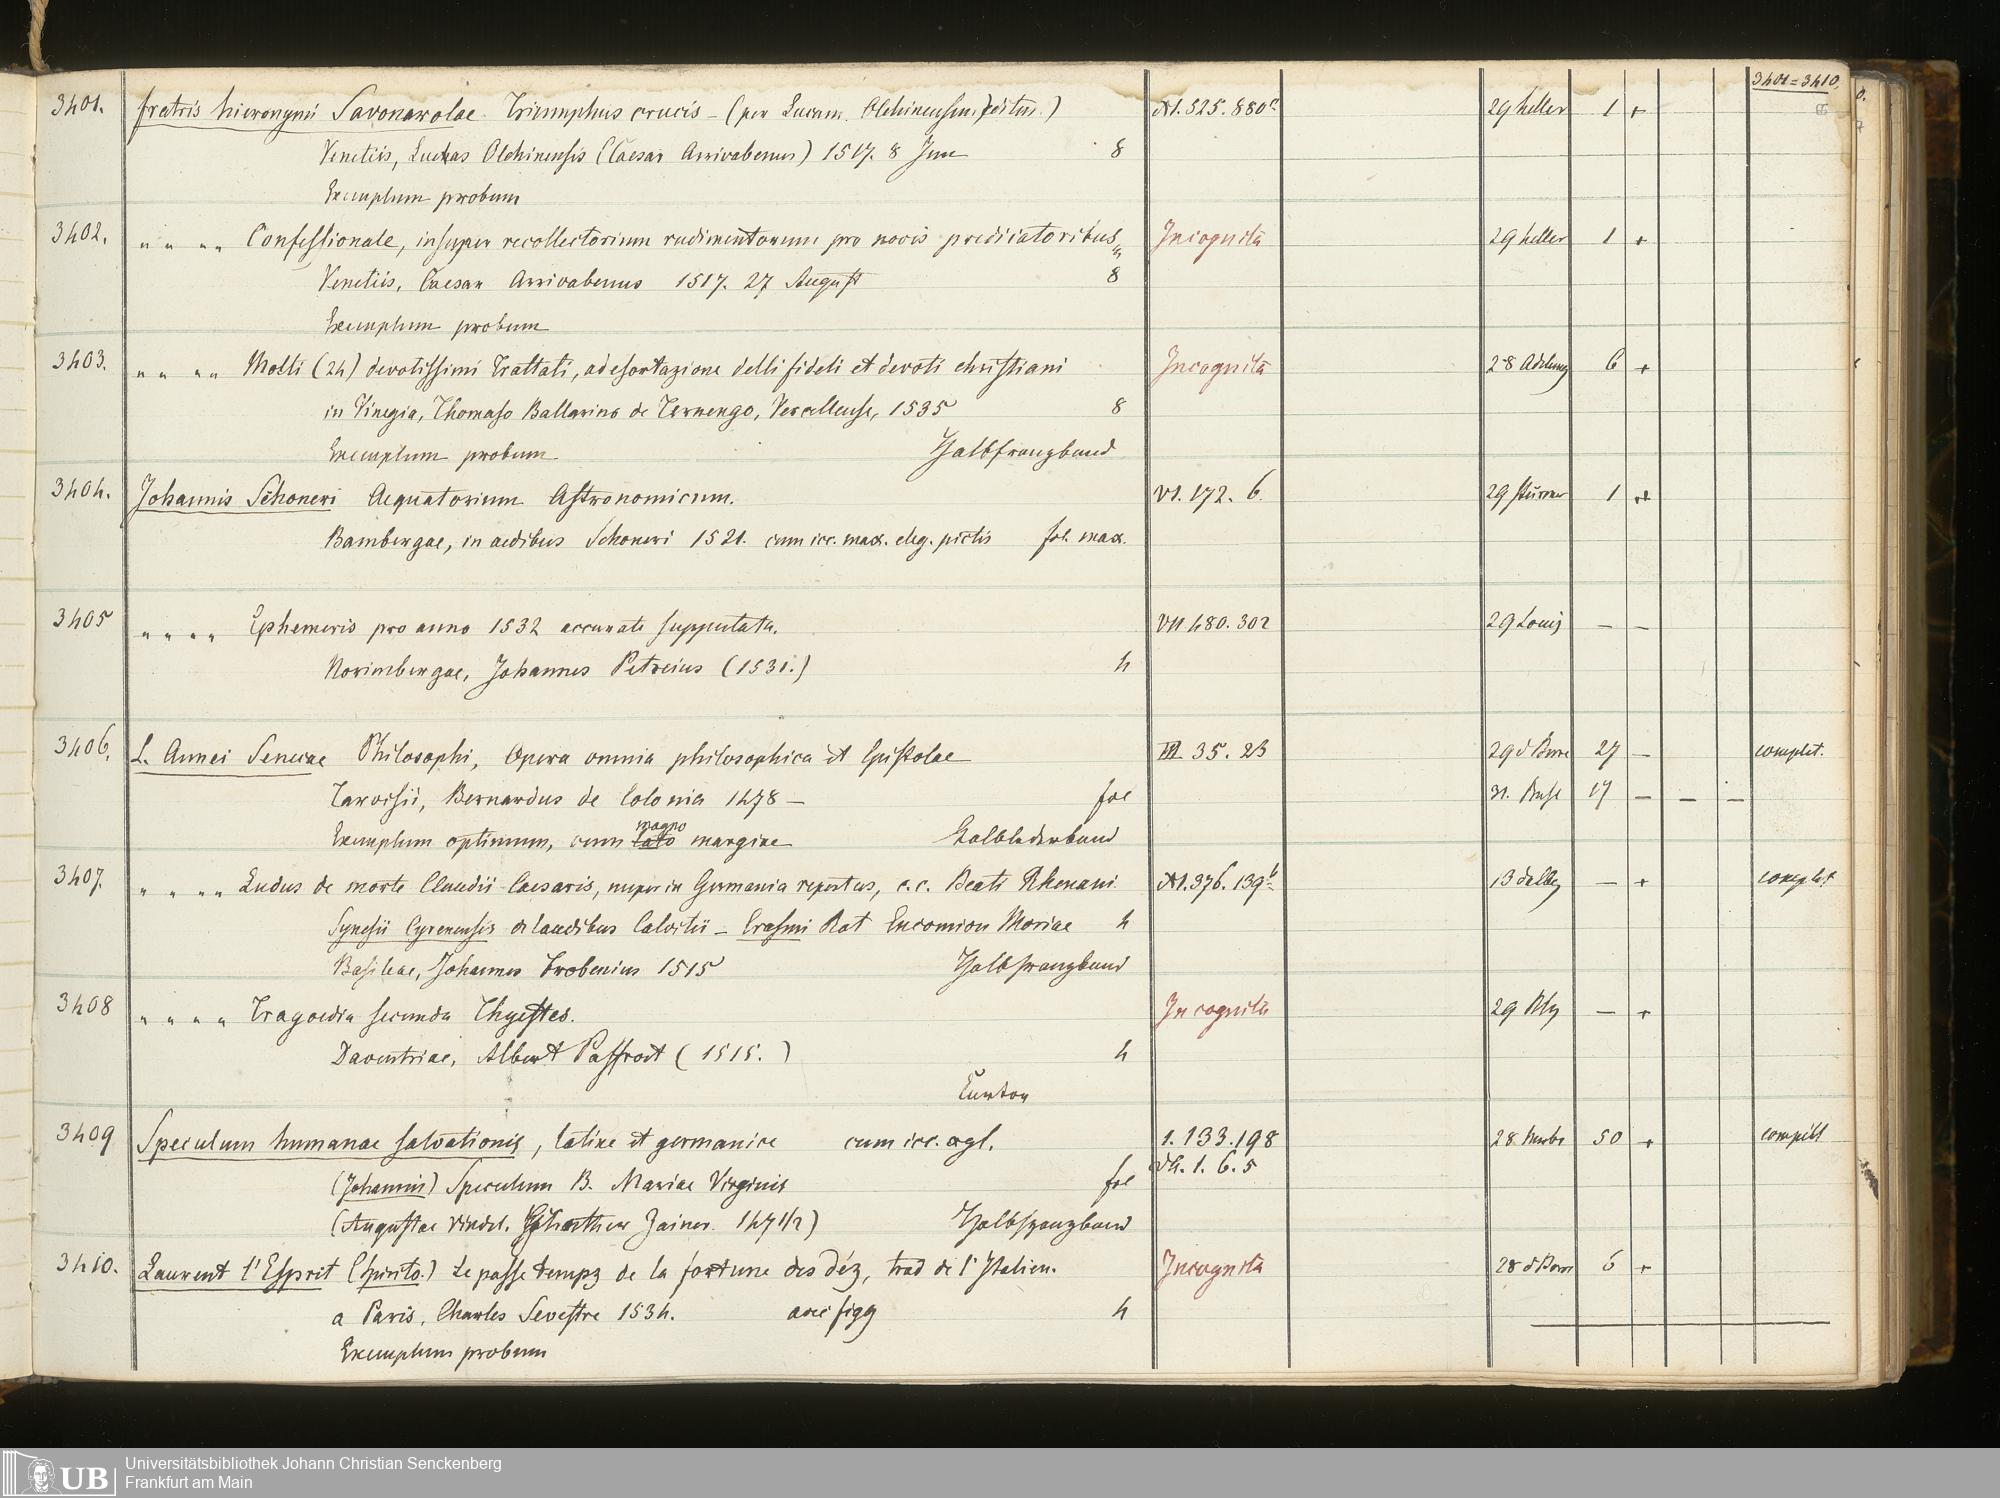 3401=3410.
3401. fratris hieronymi Savonarolae Triumphus crucis – (per Lucam Olchinensem editus.) XI. 525. 880 29 heller 1 +
Venetiis, Luchas Olchinensis (Caesar Arrivabenus) 1517. 8 Jun 8
Exemplum probum
3402. " " " " Confessionale, insuper recollectorium rudimentorum pro novis predicatoribus Incognita 29 heller 1 +
Venetiis, Caesar Arrivabenus 1517. 27 August 8
Exemplum probum
3403. " " " " Molti (24) devotissimi Trattati, ad esortazione delli fideli et devoti christiani Incognita 28 6 +
in Vinegia, Thomaso Ballarino de Ternengo, Vercellense, 1535 8
Exemplum probum Halbfranzband
3404. Johannis Schoneri Aequatorium Astronomicum. VI. 172. 6. 29 1 +
Bambergae, in aedibus Schoneri 1521. cum icc. max. eleg. pictis fol. max.
3405 " " " " Ephemeris pro anno 1532 accurate supputata. VII 480. 302 29 Louis – –
Norimbergae, Johannes Petreius (1531.) 4
3406. L. Annei Senecae Philosophi, Opera omnia philosophica et Epistolae III. 35. 23 29 27 – complet.
Tarvisii, Bernardus de Colonia 1478 – fol 31. 17 – – –
Exemplum optimum, cum lato magno margine Halblederband
3407. " " " " Ludus de morte Claudii Caesaris, nuper in Germania repertus, c.c. Beati Rhenani XI. 376. 139 13 – + complet
Synesii Cyrenensis de laudibus Calvitii – Erasmi Rot Encomion Moriae 4
Basileae, Johannes Frobenius 1515 Halbfranzband
3408 " " " " Tragoedia secunda Thyestes. Incognita 29 – +
Daventriae, Albert Paffroet (1515.) 4
Carton
3409 Speculum humanae salvationis, latine et germanice cum icc. xyl. 1. 133. 198 28 50 + complet
(Johannis) Speculum B. Mariae Virginis fol 1. 6. 5
(Augustae Vindel. Günther Zainer. 1471/2) Halbfranzband
3410. Laurent l'Esprit (Spirito.) Le passe temps de la fortune des Déz, trad de l'Italien. Incognita 28 6 +
a Paris, Charles Sevestre 1534. avec figg 4
Exemplum probum
UB Universitätsbibliothek Johann Christian Senckenberg
Frankfurt am Main